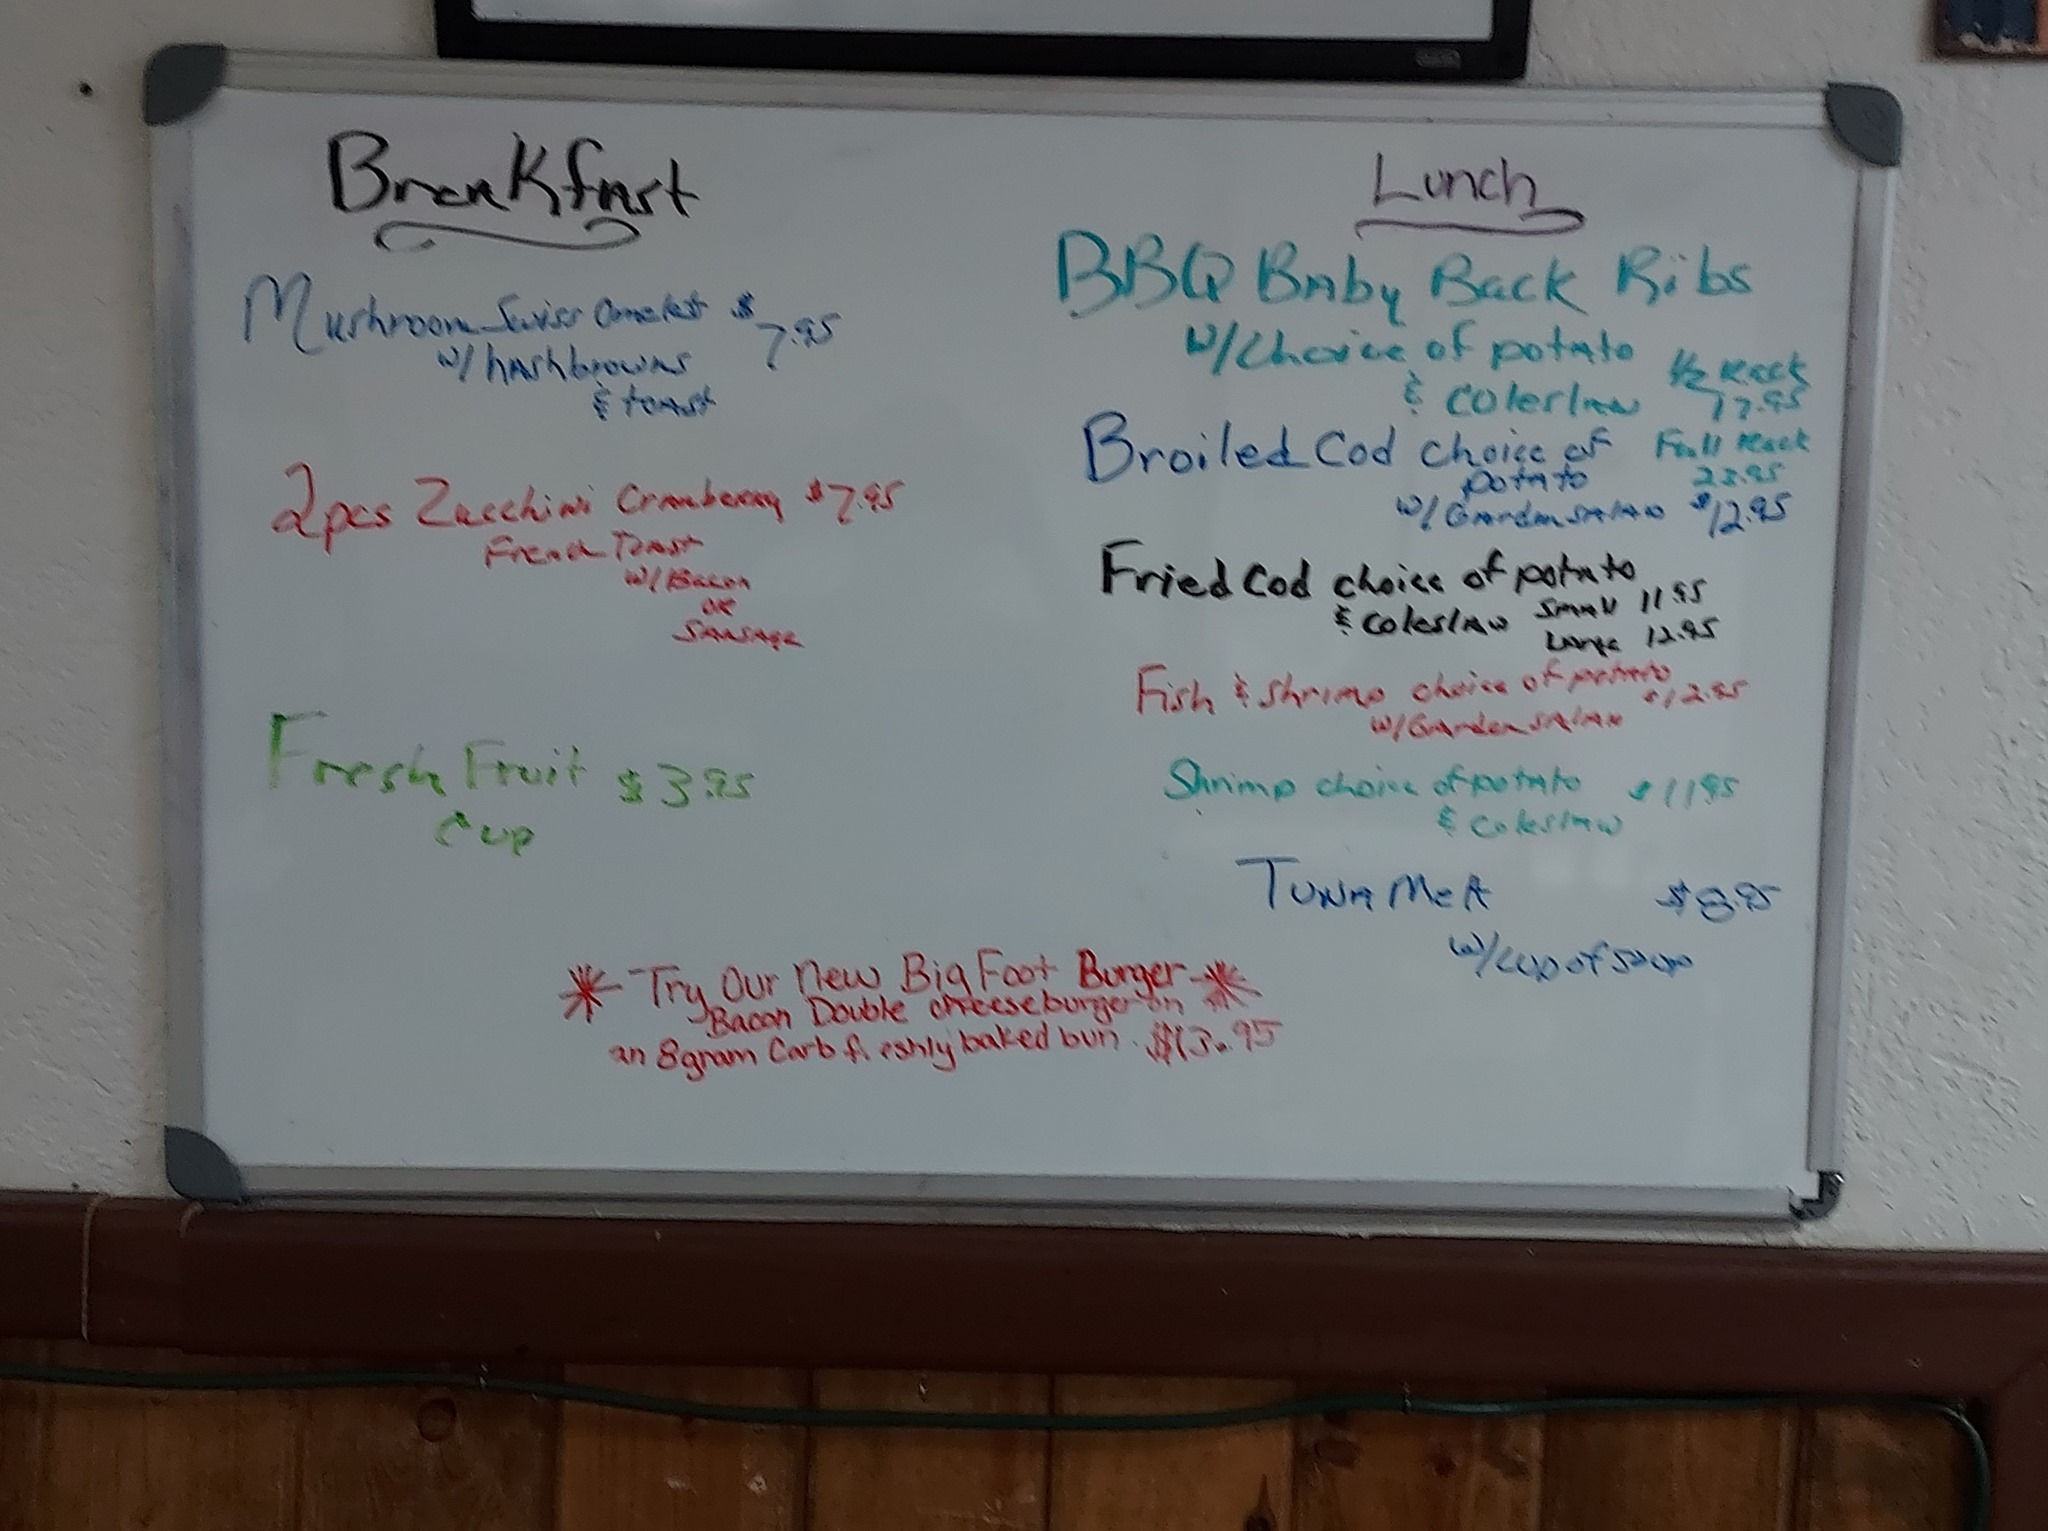 Breakfast
Mushroom Swiss Omelet $7.95
w/ hashbrowns
& toast
2pcs Zucchini Cranberry $7.95
French Toast
w/ Bacon
or
Sausage
Fresh Fruit $3.95
Cup
Lunch
BBQ Baby Back Ribs
w/ Choice of potato 1/2 Rack
& coleslaw 17.95
Broiled Cod choice of Full Rack
potato 23.95
w/ Garden salad $12.95
Fried Cod choice of potato
& coleslaw Small 11.95
Large 12.95
Fish & Shrimp choice of potato
w/ Garden salad $12.95
Shrimp choice of potato $11.95
& coleslaw
Tuna Melt $8.95
w/ cup of soup
Try Our New Big Foot Burger
Bacon Double cheeseburger on
an 8gram Carb freshly baked bun. $13.95